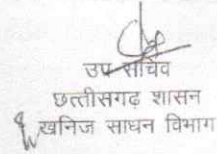 उप सचिव
छत्तीसगढ़ शासन
खनिज साधन विभाग